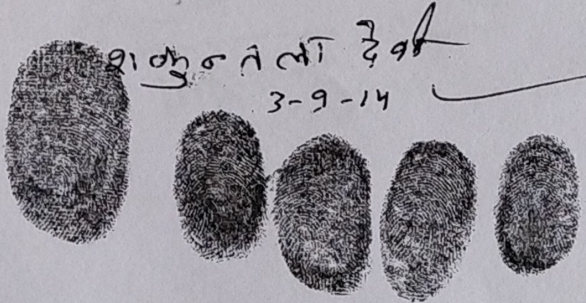 शकुन्तला देवी
3-9-14